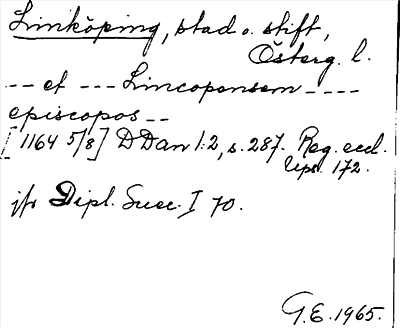 Linköping, stad o. stift,
Österg. l.
-- et --- Lincopensem ----
episcopos --
[1164 5/8] DDan 1:2, s. 287. Reg. eccl.
Ups. 172.
jfr Dipl. Suec. I 70.
G.E. 1965.